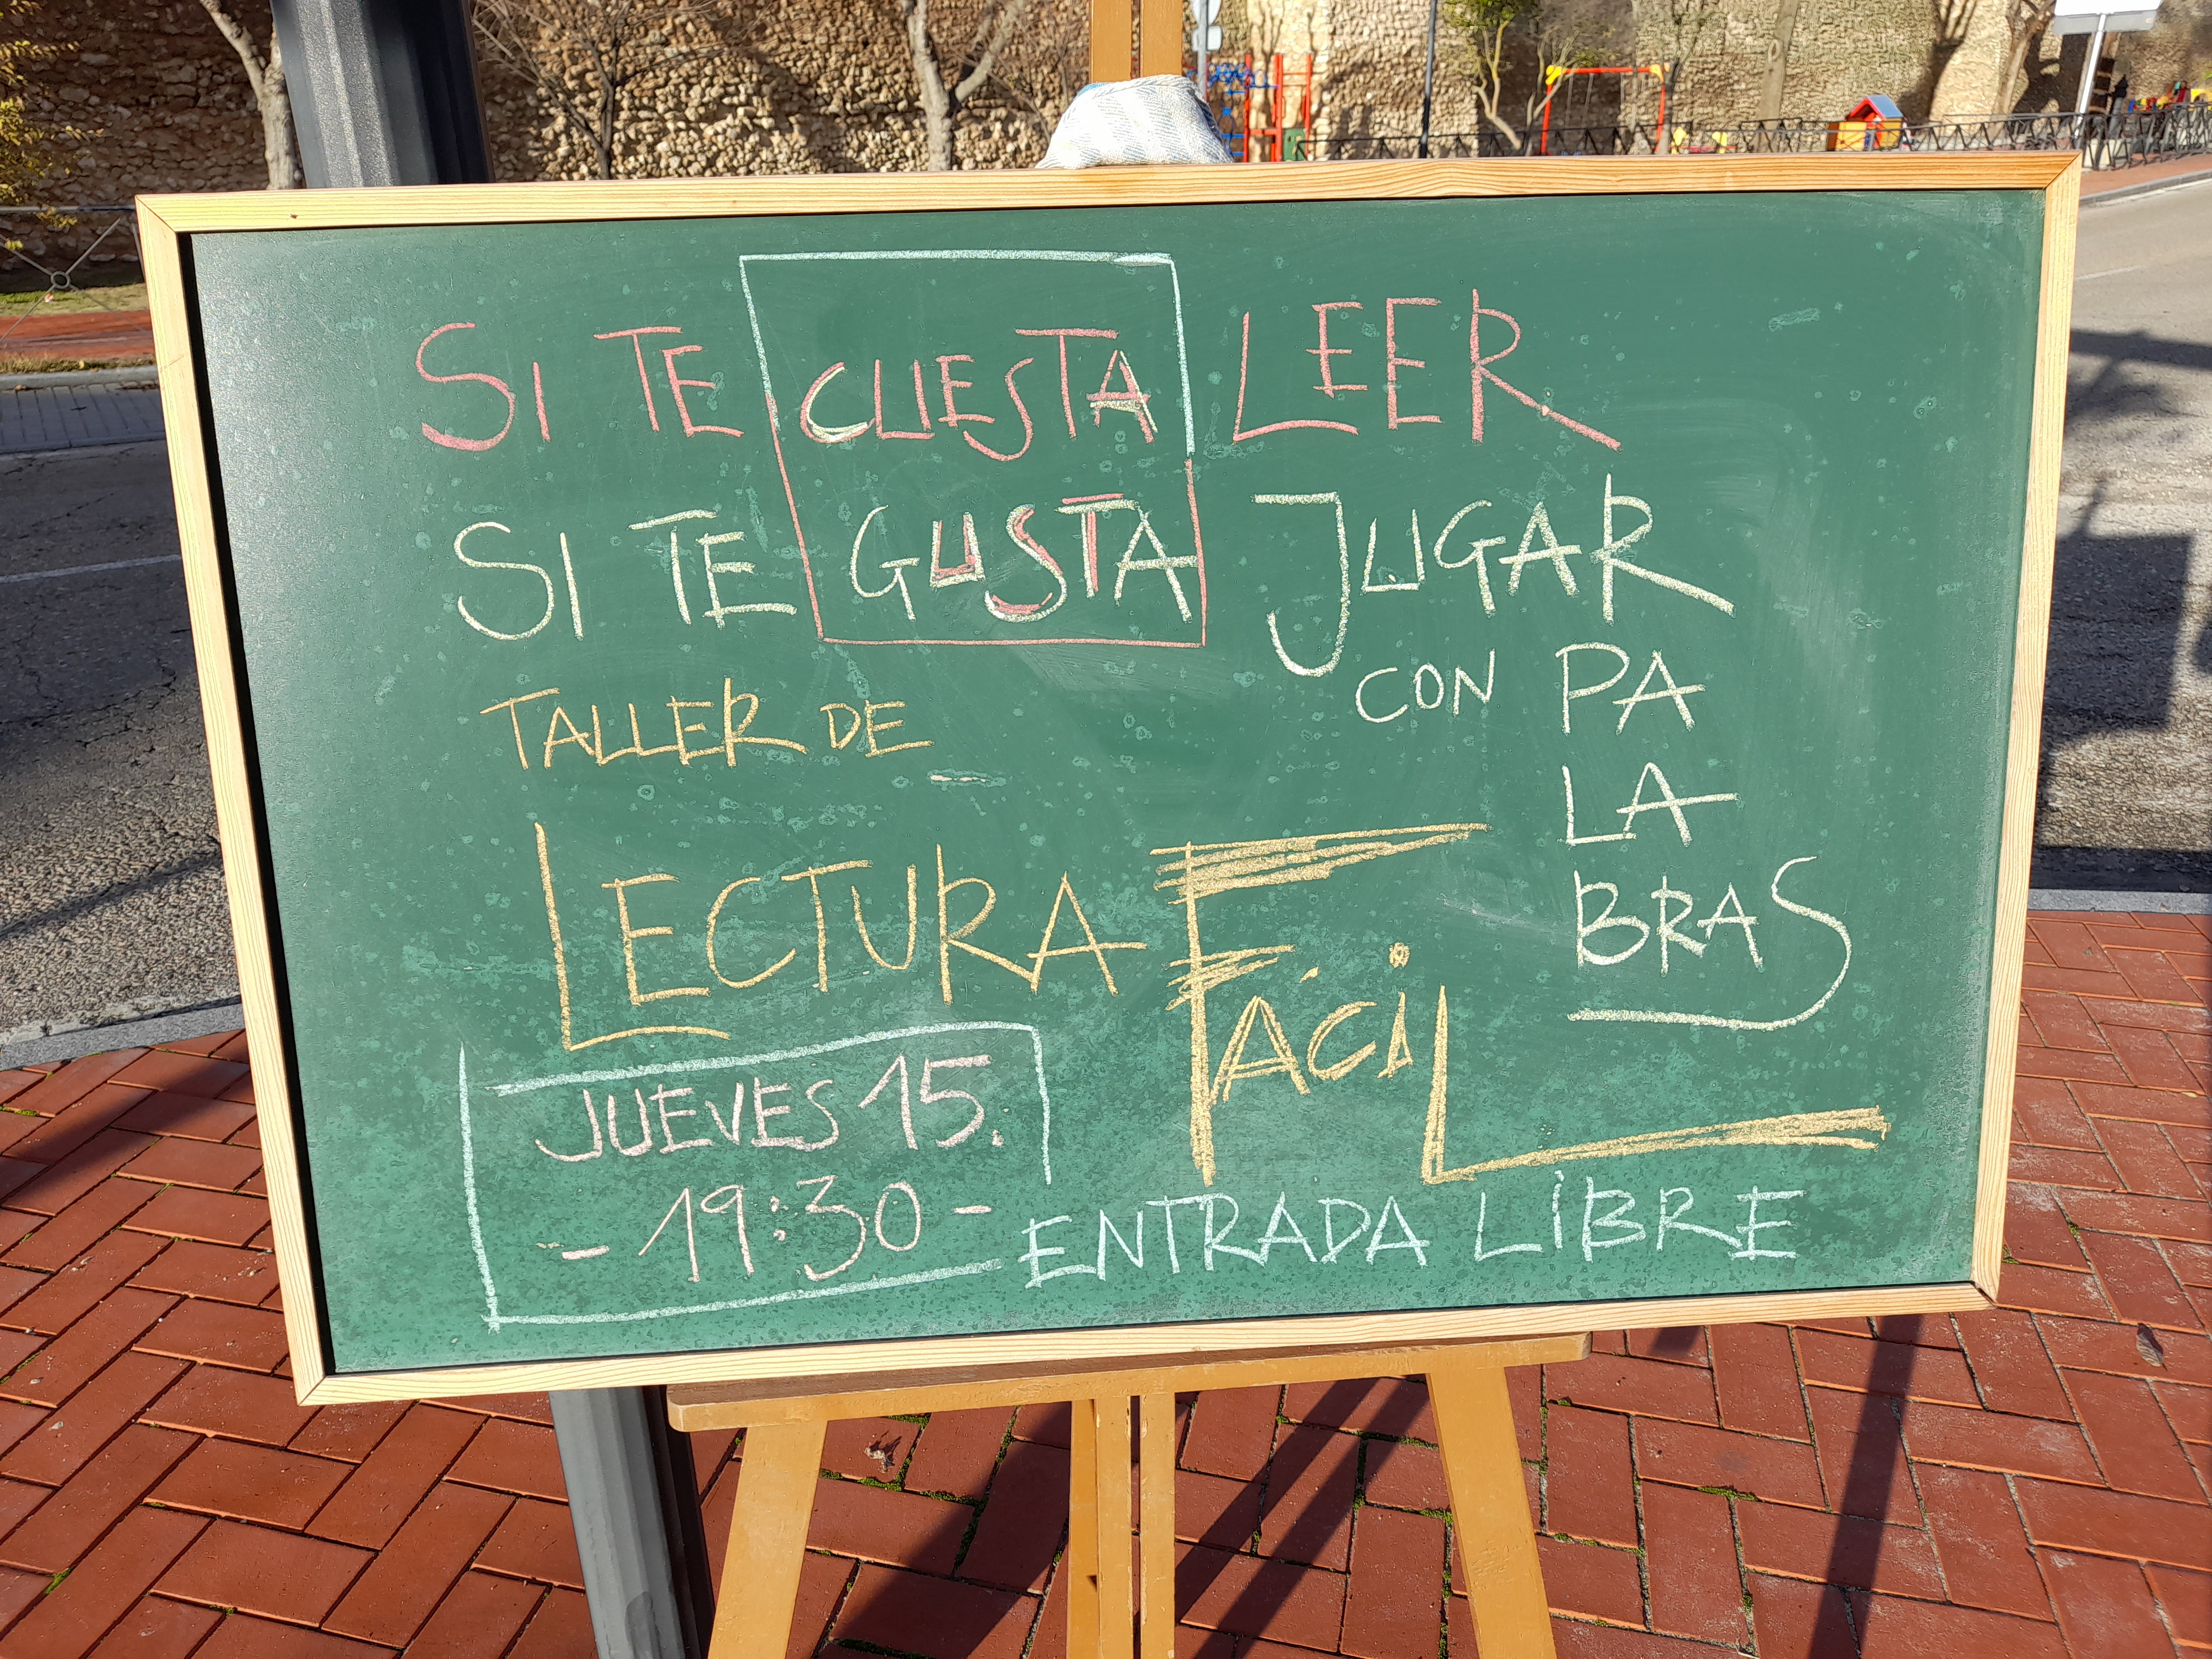 SI TE CUESTA LEER
SI TE GUSTA JUGAR
CON PA
LA
BRAS
TALLER DE
LECTURA FÁCIL
JUEVES 15.
- 19:30 -
ENTRADA LIBRE